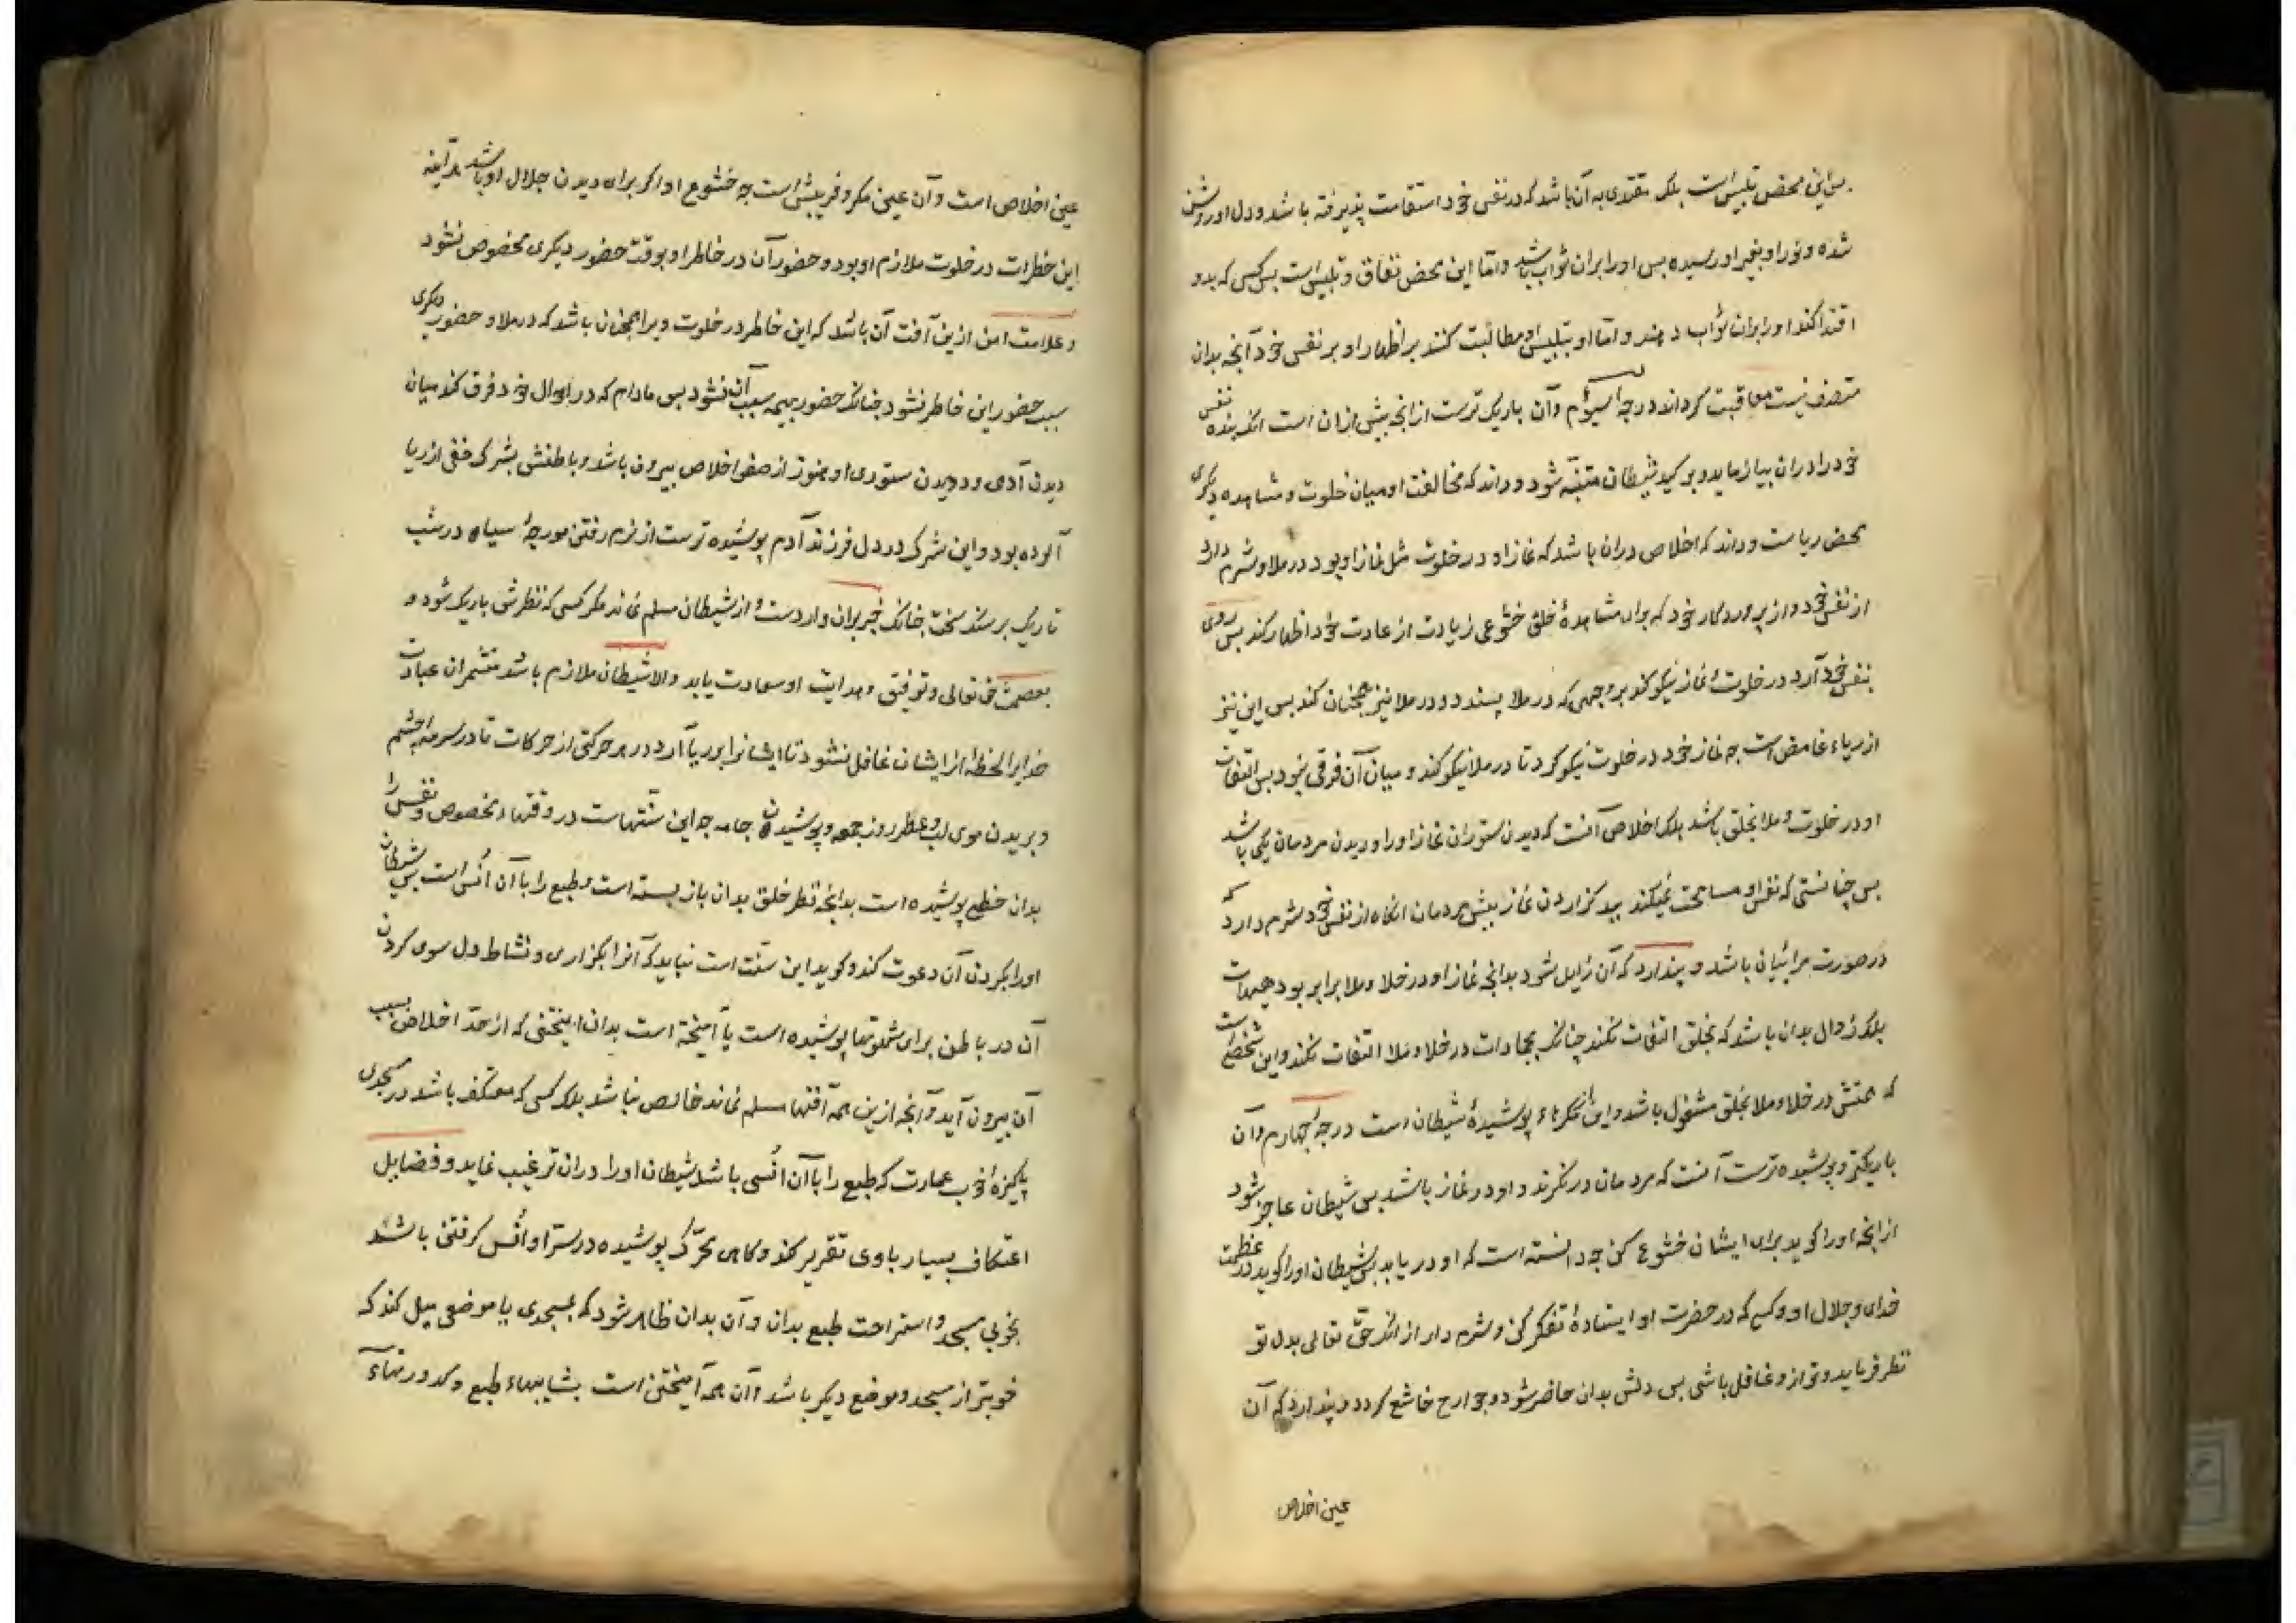 پس این محض تلبیس است بلکه مقتدی به آن باشد که در نفس خود استقامت پذیرفته باشد و دل او روشن
شده و نور او بغیر او رسیده پس او را بران ثواب باشد و امّا این محض نفاق و تلبیس است پس کسی که بدو
اقتدا کند او را بران ثواب دهند و امّا او بتلبیس او مطالبت کنند بر اظهار او بر نفس خود آنچه بدان
متصف نیست معاقبت گرداند درجهٔ سیوم و آن باریک ترست از انچه پیش ازان است انکه بنده نفس
خود را دران بیازماید و بر کید شیطان متنبّه شود و داند که مخالفت او میان خلوت و مشاهده دیگری
محض ریاست و داند که اخلاص دران باشد که نماز او در خلوت مثل نماز او بود در ملا و شرم دارد
از نفس خود و از پروردگار خود که برای مشاهدهٔ خلق خشوعی زیادت از عادت خود اظهار کند پس روی
بنفس خود آرد در خلوت و نماز نیکو کند بر وجهی که در ملا پسندد و در ملا نیز همچنان کند پس این نیز
از ریاء غامض است چه نماز خود در خلوت نیکو کرد تا در ملا نیکو کند و میان آن فرقی نبود پس التفات
او در خلوت و ملا بخلق باشد بلکه اخلاص آنست که دیدن ستوران نماز او را و دیدن مردمان یکی باشد
پس چنانستی که نفس او مسامحت نمیکند ببد گزاردن نماز پیش مردمان انگاه از نفس خود شرم دارد که
در صورت مرائیان باشد و پندارد که آن زایل شود بدانچه نماز او در خلا و ملا برابر بود هیهات
بلکه زوال بدان باشد که بخلق التفات نکند چنانکه بجمادات در خلا و ملا التفات نکند و این شخصی است
که همتش در خلا و ملا بخلق مشغول باشد و این از مکرهاء پوشیدهٔ شیطان است درجهٔ چهارم و آن
باریکتر و پوشیده ترست آنست که مردمان درنگرند و او در نماز باشد پس شیطان عاجز شود
از انچه او را گوید برای ایشان خشوع کن چه دانسته است که او دریابد پس شیطان او را گوید در عظمت
خدای و جلال او و کسی که در حضرت او ایستادهٔ تفکر کن و شرم دار از انکه حقّ تعالی بدل تو
نظر فرماید و تو ازو غافل باشی پس دلش بدان حاضر شود و جوارح خاشع گردد و پندارد که آن
عین اخلاص
عین اخلاص است و آن عین مکر و فریبش است چه خشوع او اگر برای دیدن جلال او باشد هرآینه
این خطرات در خلوت ملازم او بود و حضور آن در خاطر او بوقت حضور دیگری مخصوص نشود
و علامت امن ازین آفت آن باشد که این خاطر در خلوت ویرا همچنان باشد که در ملا و حضور دیگری
سبب حضور این خاطر نشود چنانکه حضور بهیمه سبب آن نشود پس مادام که در احوال خود فرق کند میان
دیدن آدمی و دیدن ستوری او هنوز از صفو اخلاص بیرون باشد و باطنش بشرک خفی از ریا
آلوده بود و این شرک در دل فرزند آدم پوشیده ترست از نرم رفتن مورچهٔ سیاه در شب
تاریک بر سنگ سخت چنانک خبر بران واردست و از شیطان مسلم نماند مگر کسی که نظرش باریک شود و
بعصمت حق تعالی و توفیق و هدایت او سعادت یابد والا شیطان ملازم باشد متشمران عبادت
خدایرا لحظهٔ از ایشان غافل نشود تا ایشانرا بر ریا آرد در هر حرکتی از حرکات تا در سرمهٔ چشم
و بریدن موی لب و عطر روز جمعه و پوشیدن جامه چه این سنّتهاست در وقتهاء مخصوص و نفس را
بدان حظی پوشیده است بدانچه نظر خلق بدان باز بسته است و طبع را با آن اُنس است پس شیطان
او را بکردن آن دعوت کند و گوید این سنّت است نباید که آنرا بگزاری و نشاط دل سوی کردن
آن در باطن برای شهوتها پوشیده است یا آمیخته است بدان امیختنی که از حدّ اخلاص بسبب
آن بیرون آید و آنچه ازین همه آفتها مسلم نماند خالص نباشد بلکه کسی که معتکف باشد در مسجدی
پاکیزهٔ خوب عمارت که طبع را با آن اُنسی باشد شیطان او را دران ترغیب نماید و فضایل
اعتکاف بسیار باوی تقریر کند و گاهی محرّک پوشیده در سرّ او اُنس گرفتن باشد
بخوبی مسجد و استراحت طبع بدان و آن بدان ظاهر شود که بمسجدی یا موضعی میل کند که
خوبتر از مسجد و موضع دیگر باشد و آن همه آمیختن است بشایبهاء طبع و کدورتهاء